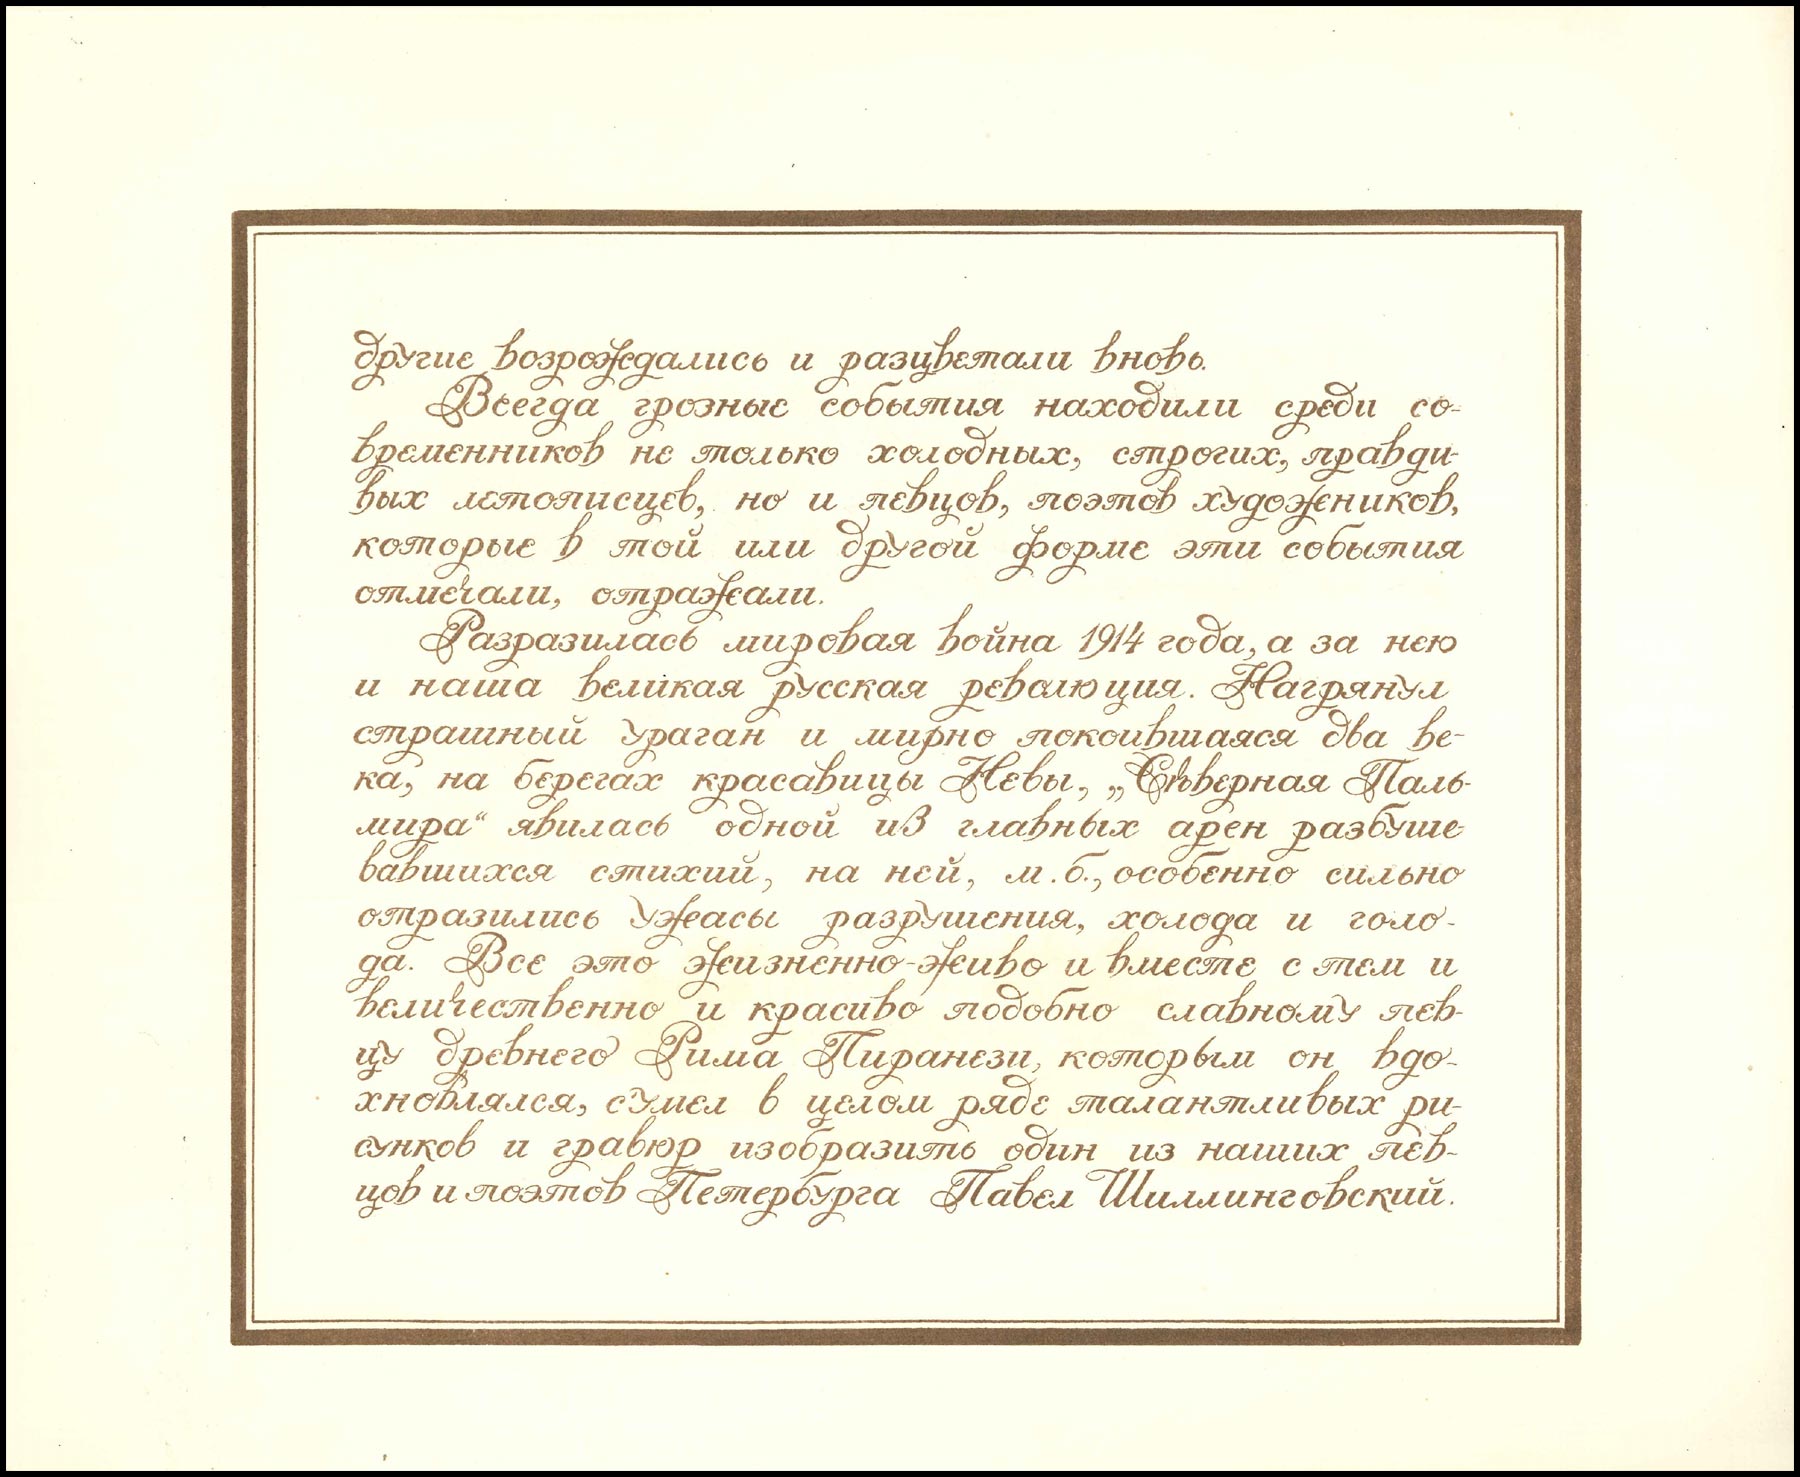 другие возрождались и разцветали вновь.
Всегда грозные события находили среди со-
временников не только холодных, строгих, правди-
вых летописцев, но и певцов, поэтов художеников,
которые в той или другой форме эти события
отмечали, отражали.
Разразилась мировая война 1914 года, а за нею
и наша великая русская революция. Нагрянул
страшный ураган и мирно покоившаяся два ве-
ка, на берегах красавицы Невы, „Сѣверная Паль-
мира“ явилась одной из главных арен разбуше-
вавшихся стихий, на ней, м.б., особенно сильно
отразились ужасы разрушения, холода и голо-
да. Все это жизненно-живо и вместе с тем и
величественно и красиво подобно славному пев-
цу древнего Рима Пиранези, которым он вдо-
хновлялся, сумел в целом ряде талантливых ри-
сунков и гравюр изобразить один из наших пев-
цов и поэтов Петербурга Павел Шиллинговский.